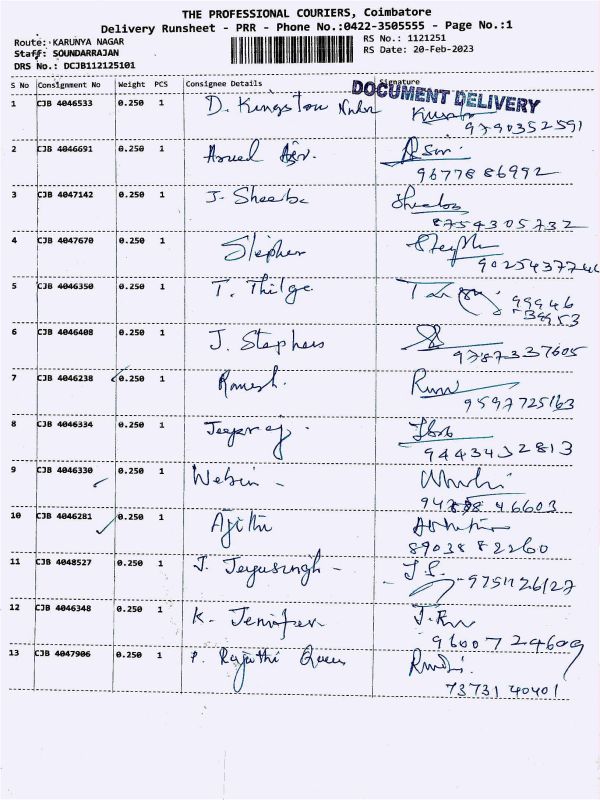 THE PROFESSIONAL COURIERS, Coimbatore
Delivery Runsheet - PRR - Phone No.:0422-3505555 - Page No.:1
Route: KARUNYA NAGAR RS No.: 1121251
Staff: SOUNDARRAJAN RS Date: 20-Feb-2023
DRS No.: DCJB112125101
S No Consignment No Weight PCS Consignee Details Signature
DOCUMENT DELIVERY
1 CJB 4046533 0.250 1 D. Kingston
9790352591
2 CJB 4046691 0.250 1
9677886992
3 CJB 4047142 0.250 1 J. Sheeba
8754305732
4 CJB 4047670 0.250 1 Stephen
5 CJB 4046350 0.250 1 T. Thilga
99946
6 CJB 4046408 0.250 1 J. Stephens
9787337605
7 CJB 4046238 0.250 1 Ramesh.
9597725163
8 CJB 4046334 0.250 1 Jeyaraj.
9443432813
9 CJB 4046330 0.250 1 Webin -
10 CJB 4046281 0.250 1 Ajithu
8903882260
11 CJB 4048527 0.250 1 J. Jeyasingh -
9751126127
12 CJB 4046348 0.250 1 K. Jenifer
9600724609
13 CJB 4047906 0.250 1 P. Rajathi Queen
7373140401